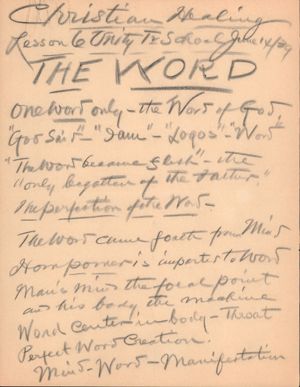 Christian Healing
Lesson 6 Unity Tr School June 14/29
THE WORD
One Word only - the Word of God,
"God Said" - "I am" - "Logos" - "Word"
"The Word became flesh" - the
"only begotten of the Father."
The perfection of the Word -
The Word came forth from Mind
How power is imparted to Word
Man's Mind the focal point
and his body the machine
Word Center in body - Throat
Perfect Word Creation.
Mind - Word - Manifestation